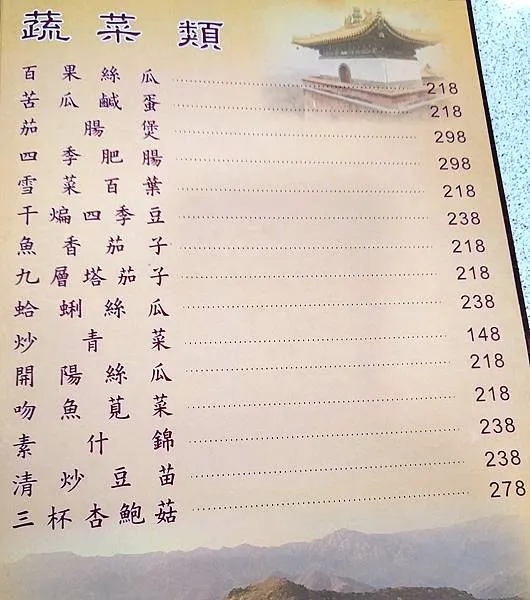 蔬菜類
百果絲瓜 218
苦瓜鹹蛋 218
茄腸煲 298
四季肥腸 298
雪菜百葉 218
干煸四季豆 238
魚香茄子 218
九層塔茄子 218
蛤蜊絲瓜 238
炒青菜 148
開陽絲瓜 218
吻魚莧菜 218
素什錦 238
清炒豆苗 238
三杯杏鮑菇 278